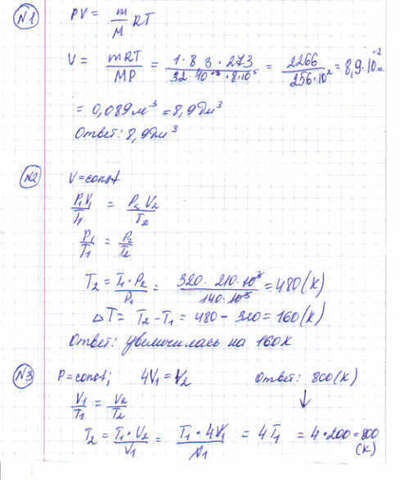 №1 PV = m/M RT
V = mRT/MP = 1·8 3·273/32·10⁻³·8·10⁵ = 2266/256·10² = 8,9·10⁻² =
= 0,089 м³ = 8,9 дм³
Ответ: 8,9 дм³
№2 V = const
P₁V₁/T₁ = P₂V₂/T₂
P₁/T₁ = P₂/T₂
T₂ = T₁·P₂/P₁ = 320·210·10³/140·10³ = 480 (К)
ΔT = T₂ - T₁ = 480 - 320 = 160 (К)
Ответ: увеличилась на 160К
№3 P = const; 4V₁ = V₂ Ответ: 800 (К)
V₁/T₁ = V₂/T₂
T₂ = T₁·V₂/V₁ = T₁·4V₁/V₁ = 4T₁ = 4·200 = 800 (К)